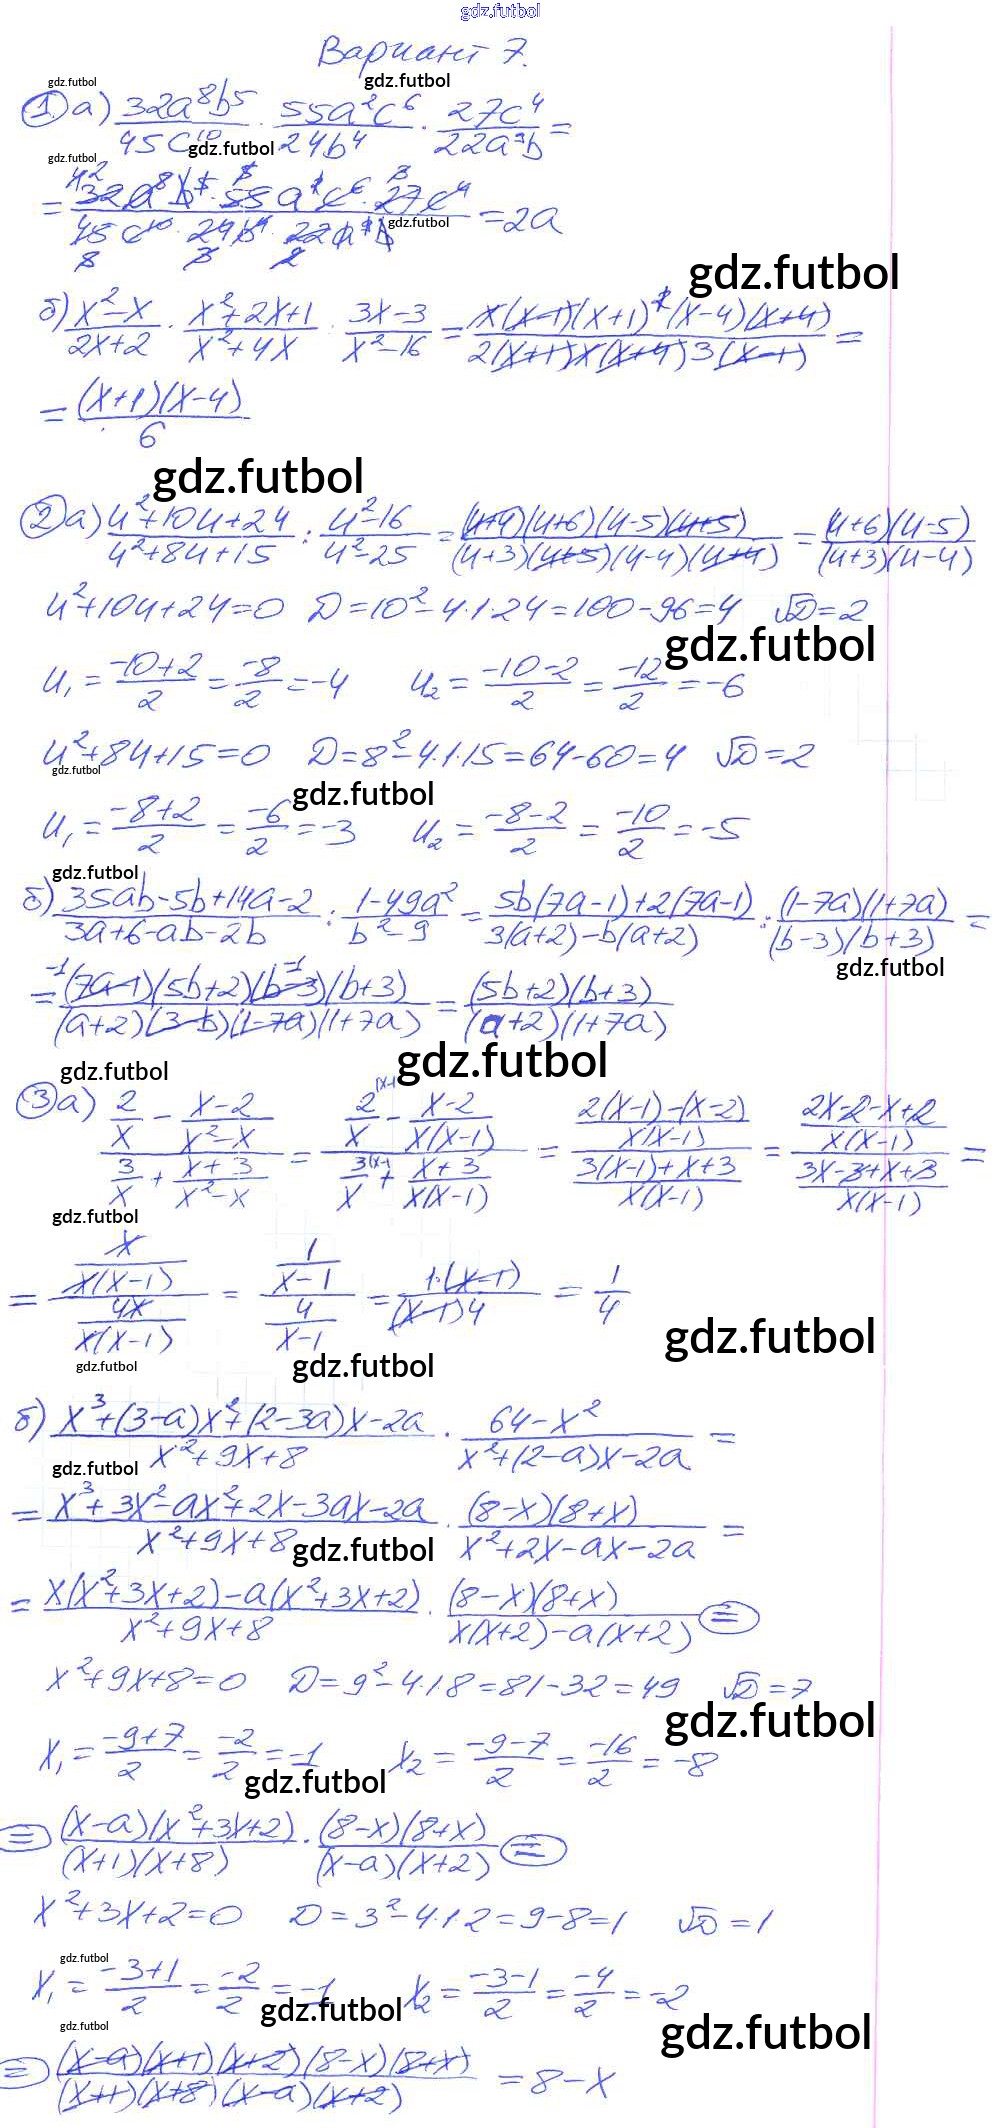 gdz.futbol
Вариант 7.
gdz.futbol gdz.futbol
① а) 32a⁸b⁵/45c¹⁰ · 55a²c⁶/24b⁴ · 27c⁴/22a⁹b =
gdz.futbol gdz.futbol
= 32a⁸b⁵·55a²c⁶·27c⁴ / 45c¹⁰·24b⁴·22a⁹b = 2a
gdz.futbol
gdz.futbol
б) x²-x/2x+2 · x²+2x+1/x²+4x · 3x-3/x²-16 = x(x-1)(x+1)²(x-4)(x+4) / 2(x+1)x(x+4)3(x-1) =
= (x+1)(x-4)/6
gdz.futbol
② а) u²+10u+24/u²+8u+15 : u²-16/u²-25 = (u+4)(u+6)(u-5)(u+5) / (u+3)(u+5)(u-4)(u+4) = (u+6)(u-5)/(u+3)(u-4)
u²+10u+24=0 D=10²-4·1·24=100-96=4 √D=2
gdz.futbol
u₁ = -10+2/2 = -8/2 = -4 u₂ = -10-2/2 = -12/2 = -6
u²+8u+15=0 D=8²-4·1·15=64-60=4 √D=2
gdz.futbol gdz.futbol
u₁ = -8+2/2 = -6/2 = -3 u₂ = -8-2/2 = -10/2 = -5
gdz.futbol
б) 35ab-5b+14a-2/3a+6-ab-2b : 1-49a²/b²-9 = 5b(7a-1)+2(7a-1)/3(a+2)-b(a+2) : (1-7a)(1+7a)/(b-3)(b+3) =
gdz.futbol
= -1(7a-1)(5b+2)(b-3)-1(b+3) / (a+2)(3-b)(1-7a)(1+7a) = (5b+2)(b+3)/(a+2)(1+7a)
gdz.futbol gdz.futbol
③ а) 2/x - x-2/x²-x / 3/x + x+3/x²-x = 2/x - x-2/x(x-1) / 3/x + x+3/x(x-1) = 2(x-1)-(x-2)/x(x-1) / 3(x-1)+x+3/x(x-1) = 2x-2-x+2/x(x-1) / 3x-3+x+3/x(x-1) =
gdz.futbol
= x/x(x-1) / 4x/x(x-1) = 1/x-1 / 4/x-1 = 1·(x-1)/(x-1)4 = 1/4
gdz.futbol
gdz.futbol gdz.futbol
б) x³+(3-a)x²+(2-3a)x-2a/x²+9x+8 · 64-x²/x²+(2-a)x-2a =
gdz.futbol
= x³+3x²-ax²+2x-3ax-2a/x²+9x+8 · (8-x)(8+x)/x²+2x-ax-2a =
gdz.futbol
= x(x²+3x+2)-a(x²+3x+2)/x²+9x+8 · (8-x)(8+x)/x(x+2)-a(x+2) =
x²+9x+8=0 D=9²-4·1·8=81-32=49 √D=7
gdz.futbol
x₁ = -9+7/2 = -2/2 = -1 x₂ = -9-7/2 = -16/2 = -8
gdz.futbol
= (x-a)(x²+3x+2)/(x+1)(x+8) · (8-x)(8+x)/(x-a)(x+2) =
x²+3x+2=0 D=3²-4·1·2=9-8=1 √D=1
gdz.futbol
x₁ = -3+1/2 = -2/2 = -1 x₂ = -3-1/2 = -4/2 = -2
gdz.futbol
gdz.futbol gdz.futbol
= (x-a)(x+1)(x+2)(8-x)(8+x) / (x+1)(x+8)(x-a)(x+2) = 8-x